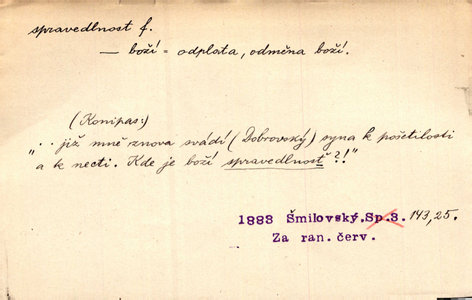 spravedlnost f.
— boží = odplata, odměna boží.
(Konipas:)
„.. již mně znova svádí (Dobrovský) syna k pošetilosti
a k necti. Kde je boží spravedlnosť?!"
1888 Šmilovský.Sp.8. 143,25.
Za ran. červ.